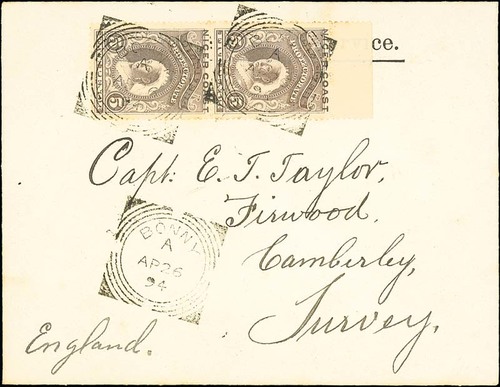 NIGER COAST
NIGER COAST
ce.
5
5
Capt. E. T. Taylor,
Firwood.
Camberley,
Surrey.
England.
BONNY
A
AP 26
94